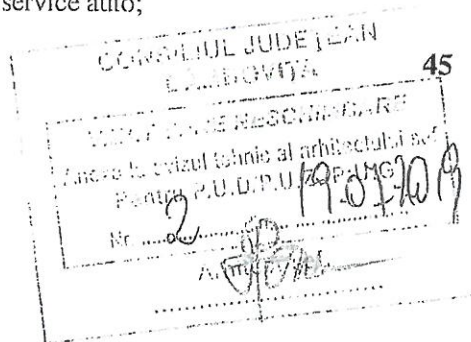 service auto;
CONSILIUL JUDEȚEAN
DÂMBOVIȚA
45
VIZAT SPRE NESCHIMBARE
Anexă la avizul tehnic al arhitectului șef
Pentru P.U.D./P.U.Z./P.U.G.
Nr. 2